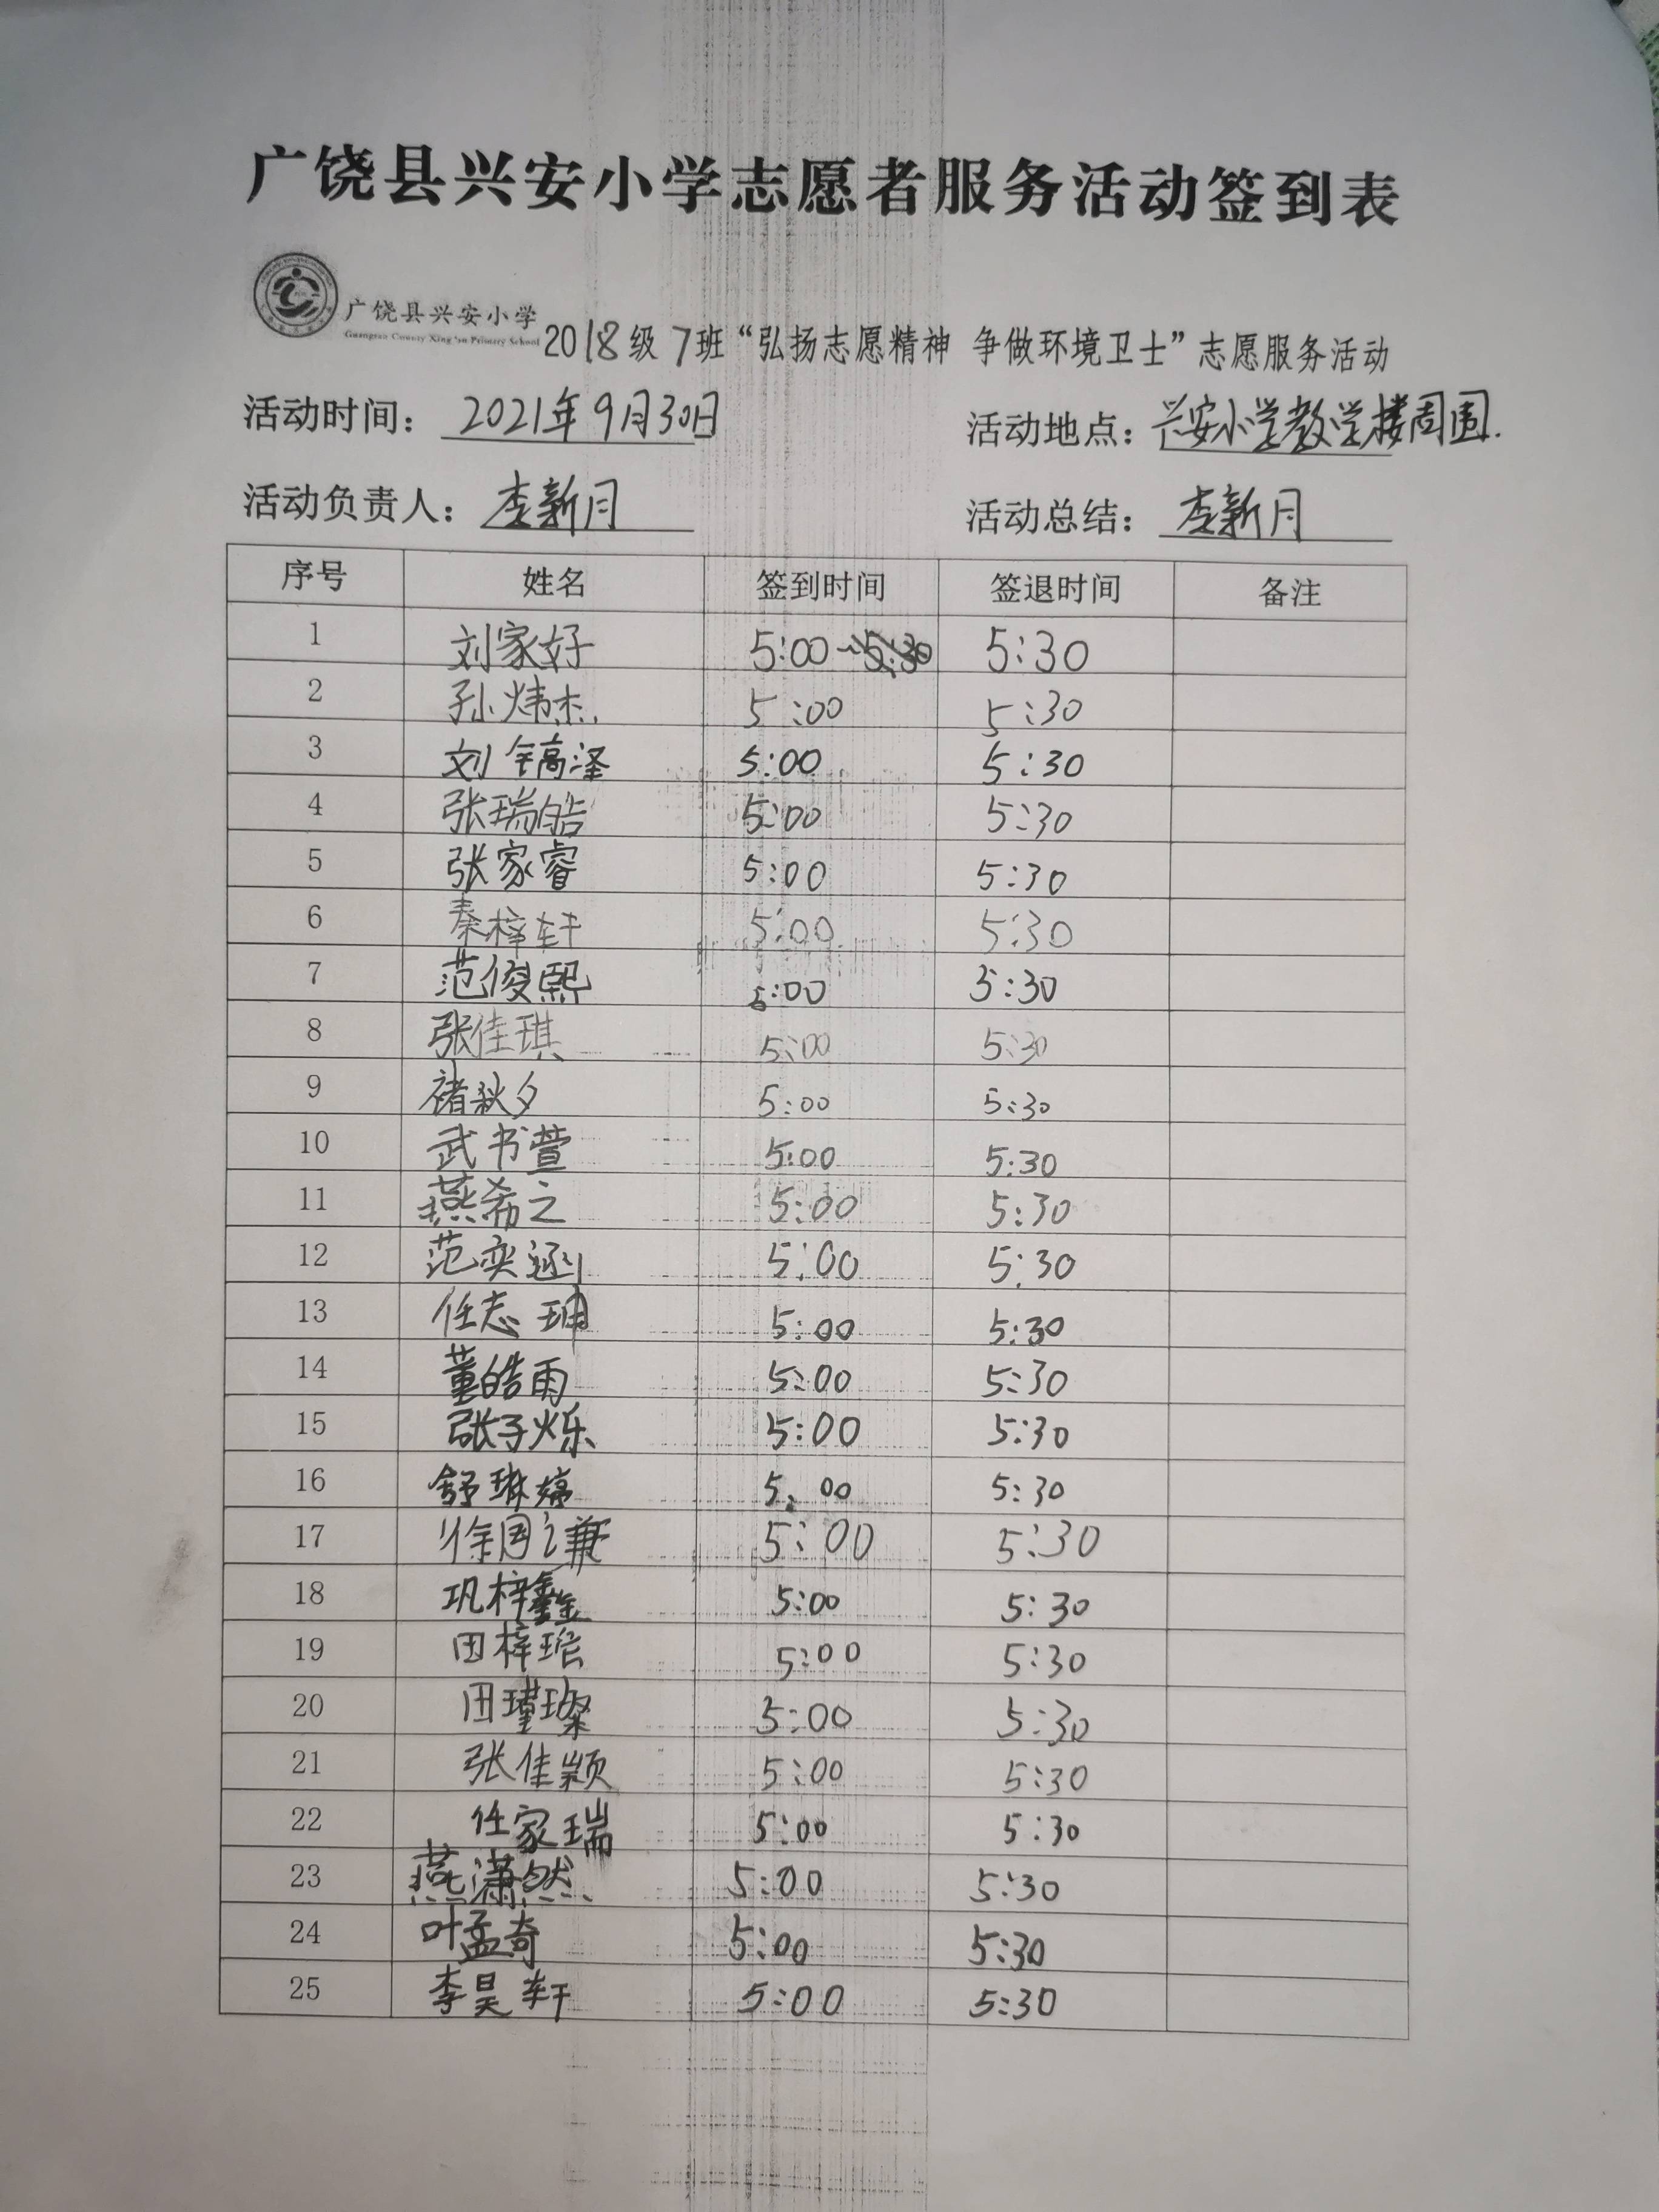 广饶县兴安小学志愿者服务活动签到表
广饶县兴安小学
Guangrao County Xing'an Primary School
2018级7班“弘扬志愿精神 争做环境卫士”志愿服务活动
活动时间: 2021年9月30日 活动地点: 兴安小学教学楼周围.
活动负责人: 李新月 活动总结: 李新月
序号 姓名 签到时间 签退时间 备注
1 刘家好 5:00 5:30
2 孙炜杰 5:00 5:30
3 刘镐泽 5:00 5:30
4 张瑞皓 5:00 5:30
5 张家睿 5:00 5:30
6 秦梓轩 5:00 5:30
7 范俊熙 5:00 5:30
8 张佳琪 5:00 5:30
9 褚秋夕 5:00 5:30
10 武书萱 5:00 5:30
11 燕希之 5:00 5:30
12 范奕 5:00 5:30
13 任志 5:00 5:30
14 董皓雨 5:00 5:30
15 张子烁 5:00 5:30
16 舒琳婷 5:00 5:30
17 徐周谦 5:00 5:30
18 巩梓鑫 5:00 5:30
19 田梓瑄 5:00 5:30
20 田瑾璨 5:00 5:30
21 张佳颖 5:00 5:30
22 任家瑞 5:00 5:30
23 燕潇然 5:00 5:30
24 叶孟奇 5:00 5:30
25 李昊轩 5:00 5:30